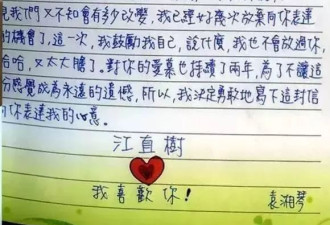 我們又不知會有多少改變,我已經好幾次放棄向你表達
的機會了,這一次,我鼓勵我自己,說什麼,我也不會放過你,
哈,又太大膽了。對你的愛慕也持續了兩年,為了不讓這
分感覺成為永遠的遺憾,所以,我決定勇敢地寫下這封信
你表達我的心意。
江直樹
我喜歡你!
袁湘琴